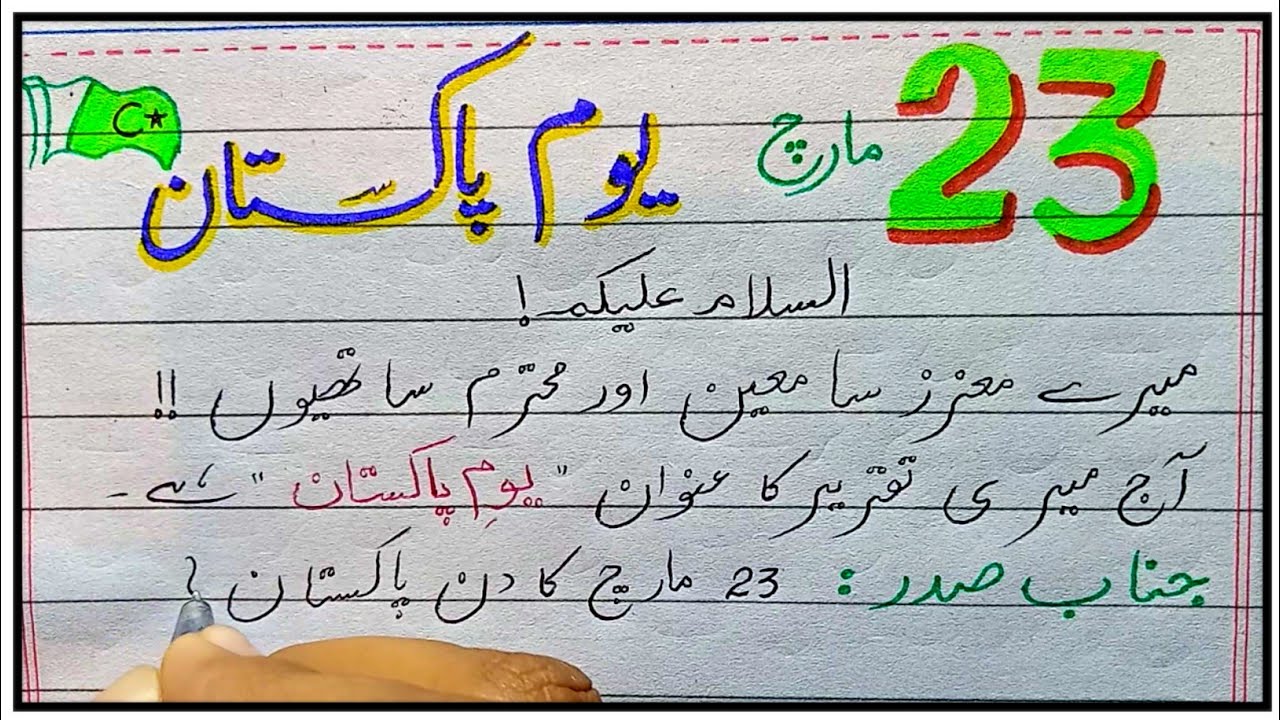 23 مارچ یوم پاکستان
السلام علیکم!
میرے معزز سامعین اور محترم ساتھیوں !!
آج میری تقریر کا عنوان "یومِ پاکستان" ہے۔
جناب صدر: 23 مارچ کا دن پاکستان